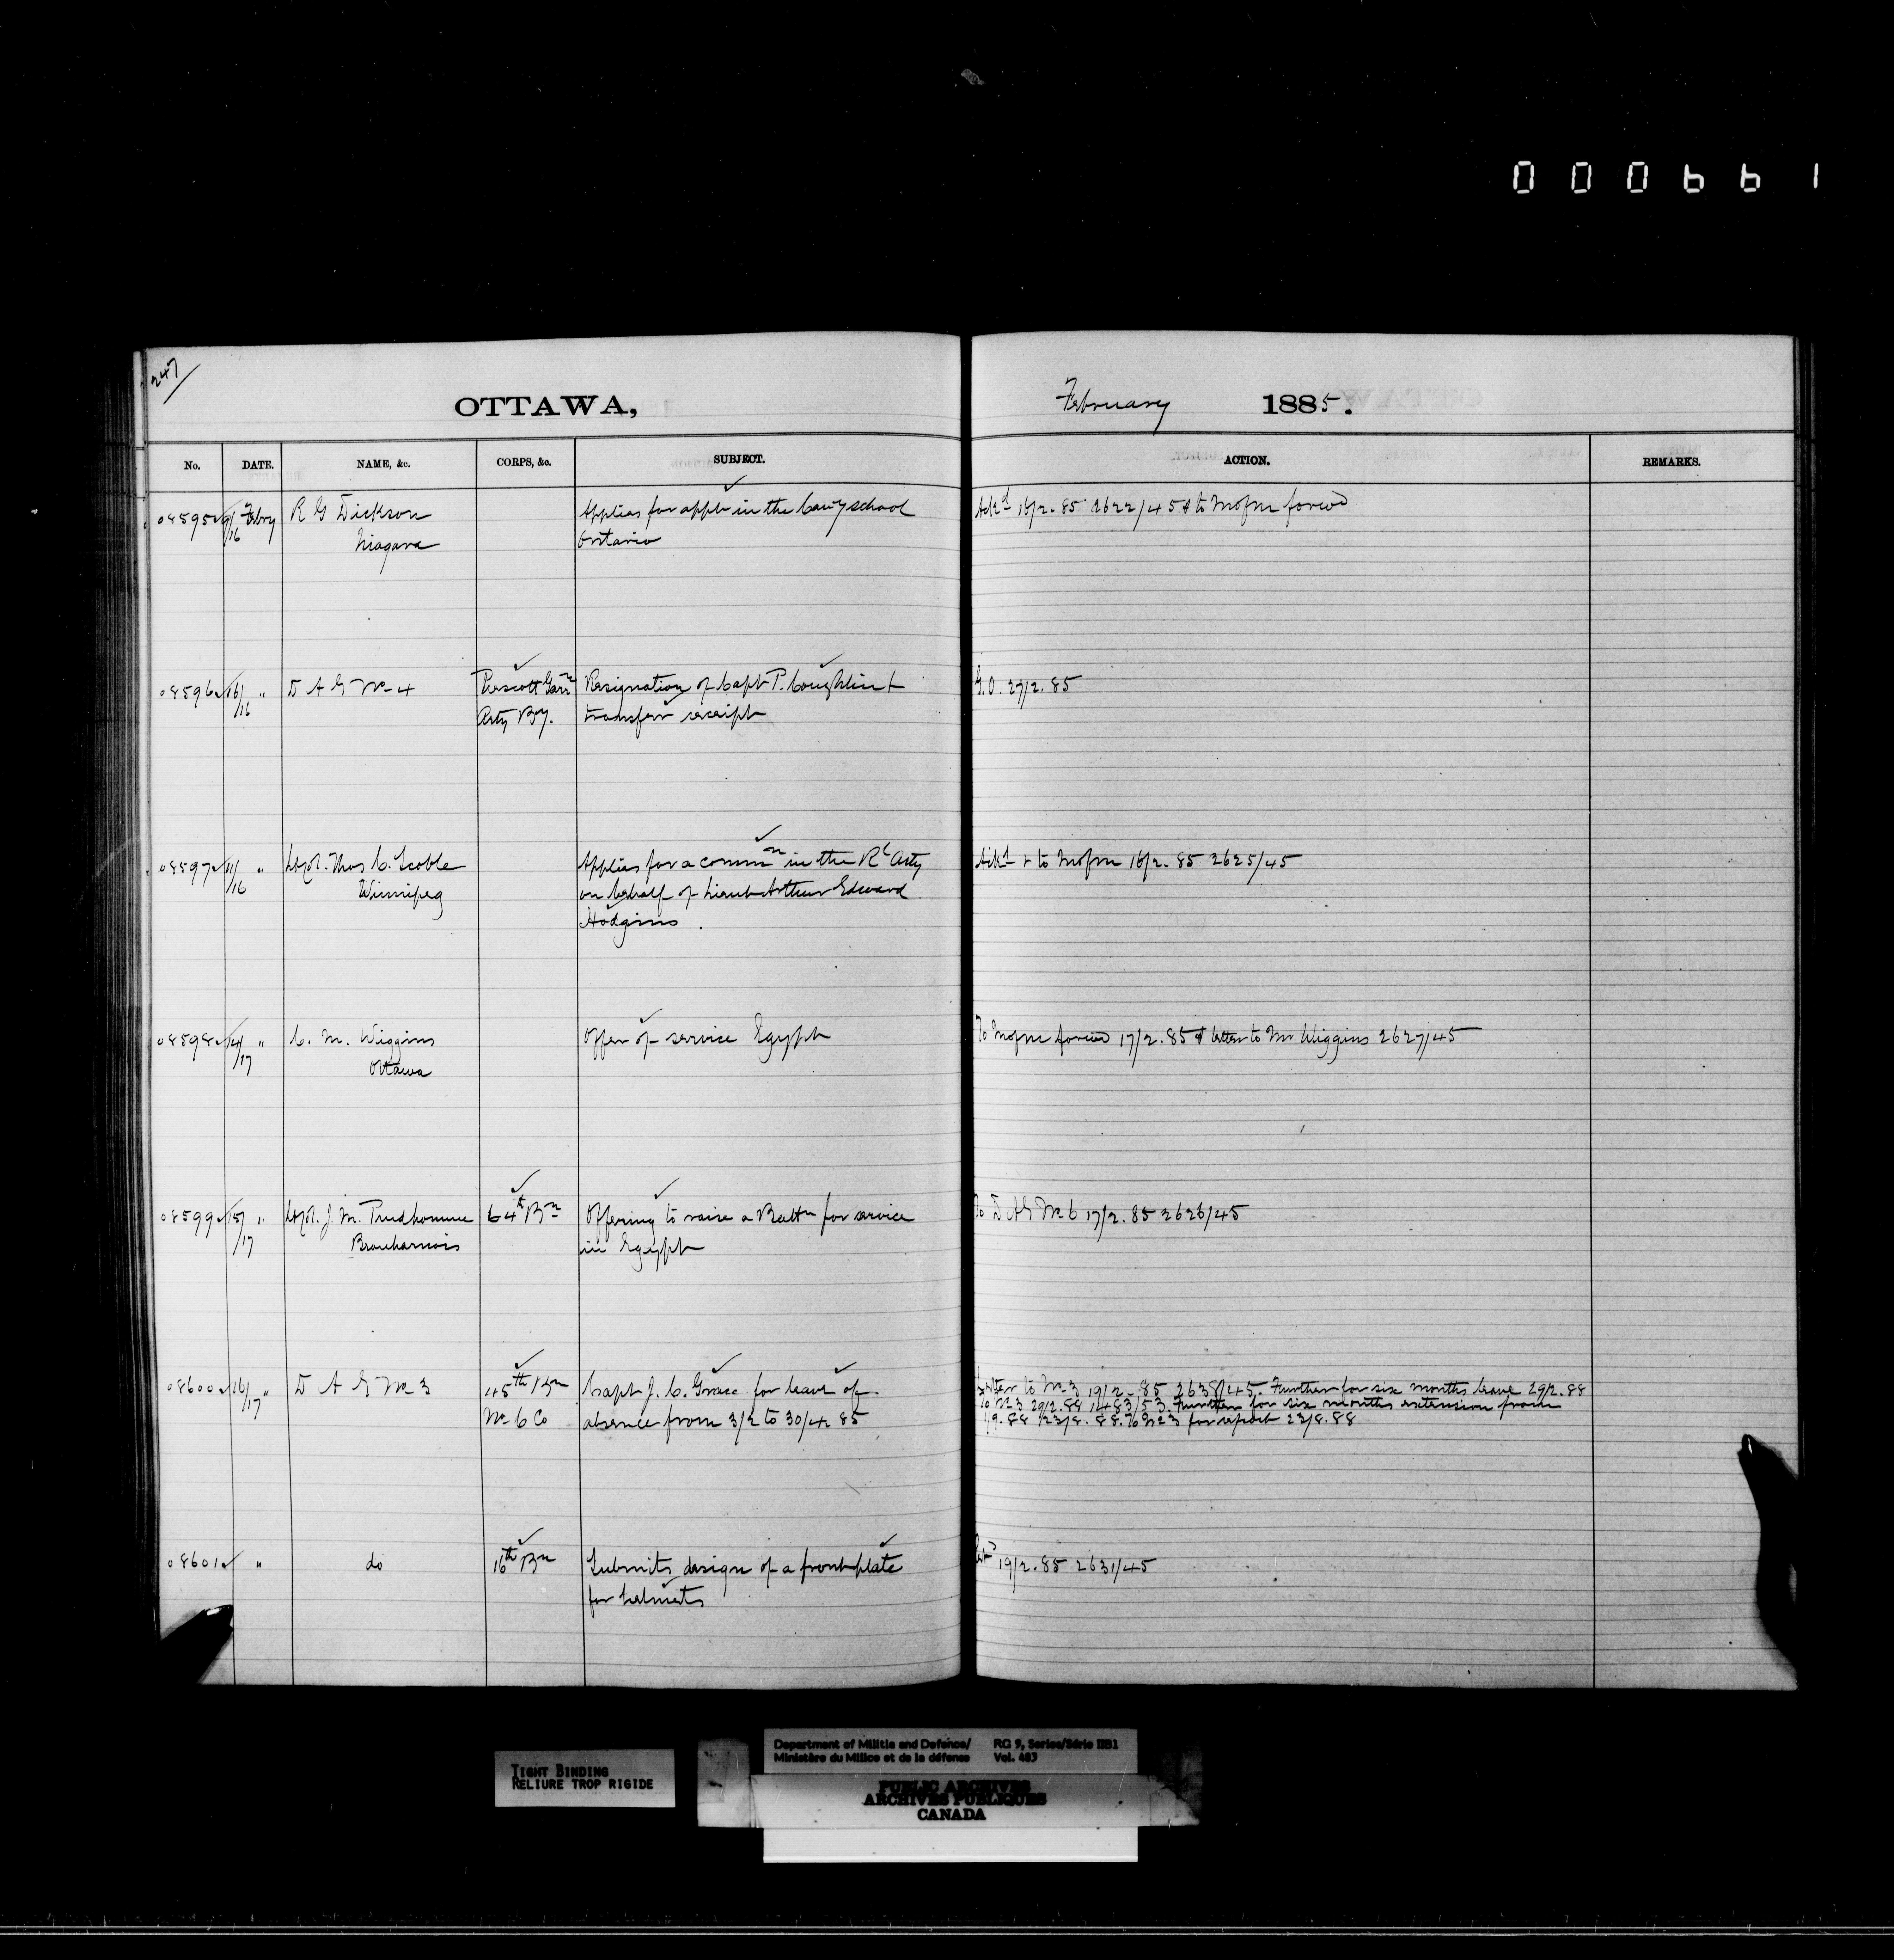 000661
247
OTTAWA, February 1885.
No. DATE. NAME, &c. CORPS, &c. SUBJECT. ACTION. REMARKS.
08595 9/16 Febry R G Dickson Applies for appt in the Cavy school Ackd 16/2.85 2622/45 & to Mofm forwd
Niagara Ontario
08596 16/16 " D A G No 4 Prescott Garrn Resignation of Capt P. Coughlin & G.O. 27/2.85
Arty By. transfer receipt
08597 11/16 " Lt Col. Thos C. Scoble Applies for a commn in the Rl Arty Ackd & to Mofm 16/2.85 2625/45
Winnipeg on behalf of Lieut Arthur Edward
Hodgins.
08598 14/17 " C. M. Wiggins Offer of service Egypt To Mofm forwd 17/2.85 & letter to Mr Wiggins 2627/45
Ottawa
08599 15/17 " Lt Col. J. M. Prudhomme 64th Bn Offering to raise a Battn for service To D A G No 6 17/2.85 2626/45
Beauharnois in Egypt
08600 16/17 " D A G No 3 45th Bn Capt J. C. Grace for leave of Letter to No 3 19/2.85 2638/45. Further for six months leave 29/2.88
No 6 Co absence from 3/2 to 30/4 85 To No 3 29/2.88 1483/53. Further for six months extension from
1/9.88 23/8.88. To No 3 for report 23/8.88
08601 " do 16th Bn Submits design of a front plate 19/2.85 2631/45
for helmets
TIGHT BINDING
RELIURE TROP RIGIDE
Department of Militia and Defence/ RG 9, Series/Série IIB1
Ministère du Milice et de la défense Vol. 483
PUBLIC ARCHIVES
ARCHIVES PUBLIQUES
CANADA